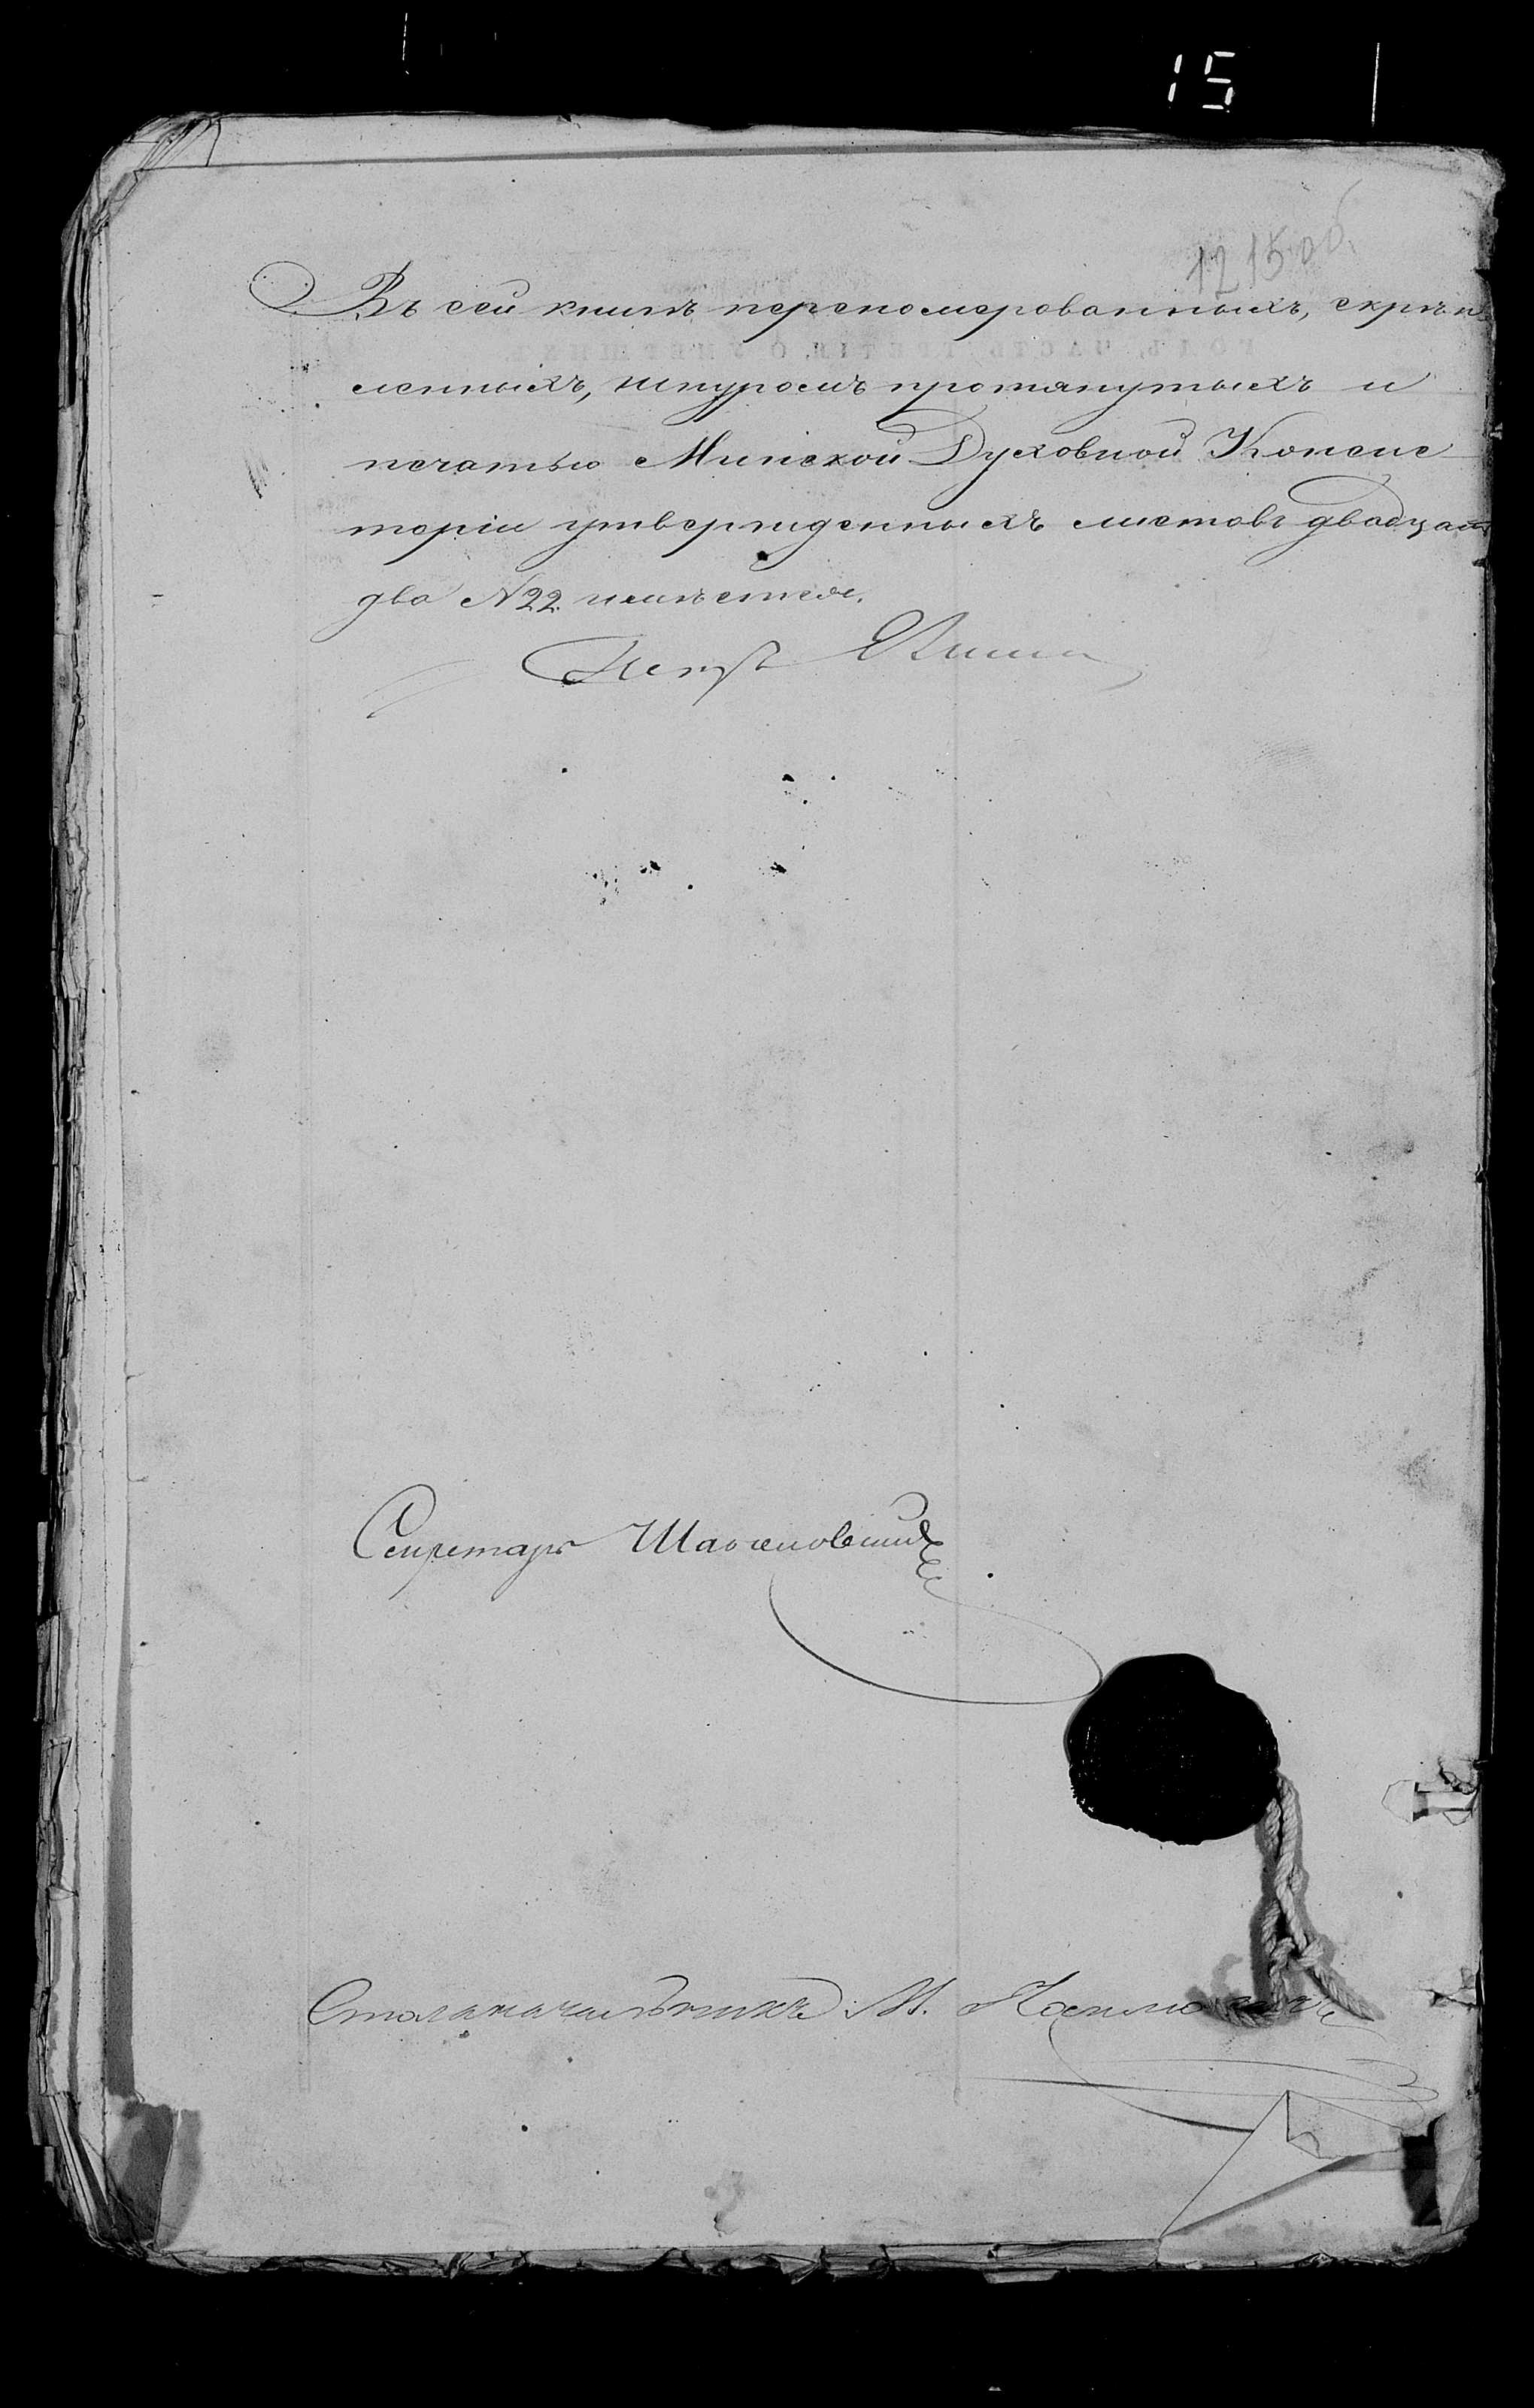 15
12 15 об.
Въ сей книгѣ перономерованныхъ, скрѣп
ленныхъ, шнуромъ протянутыхъ и
печатью Минской Духовной Консис
торіи утвержденныхъ листовъ двадцать
два N 22. имѣется.
Секретарь
Столоначальникъ М.